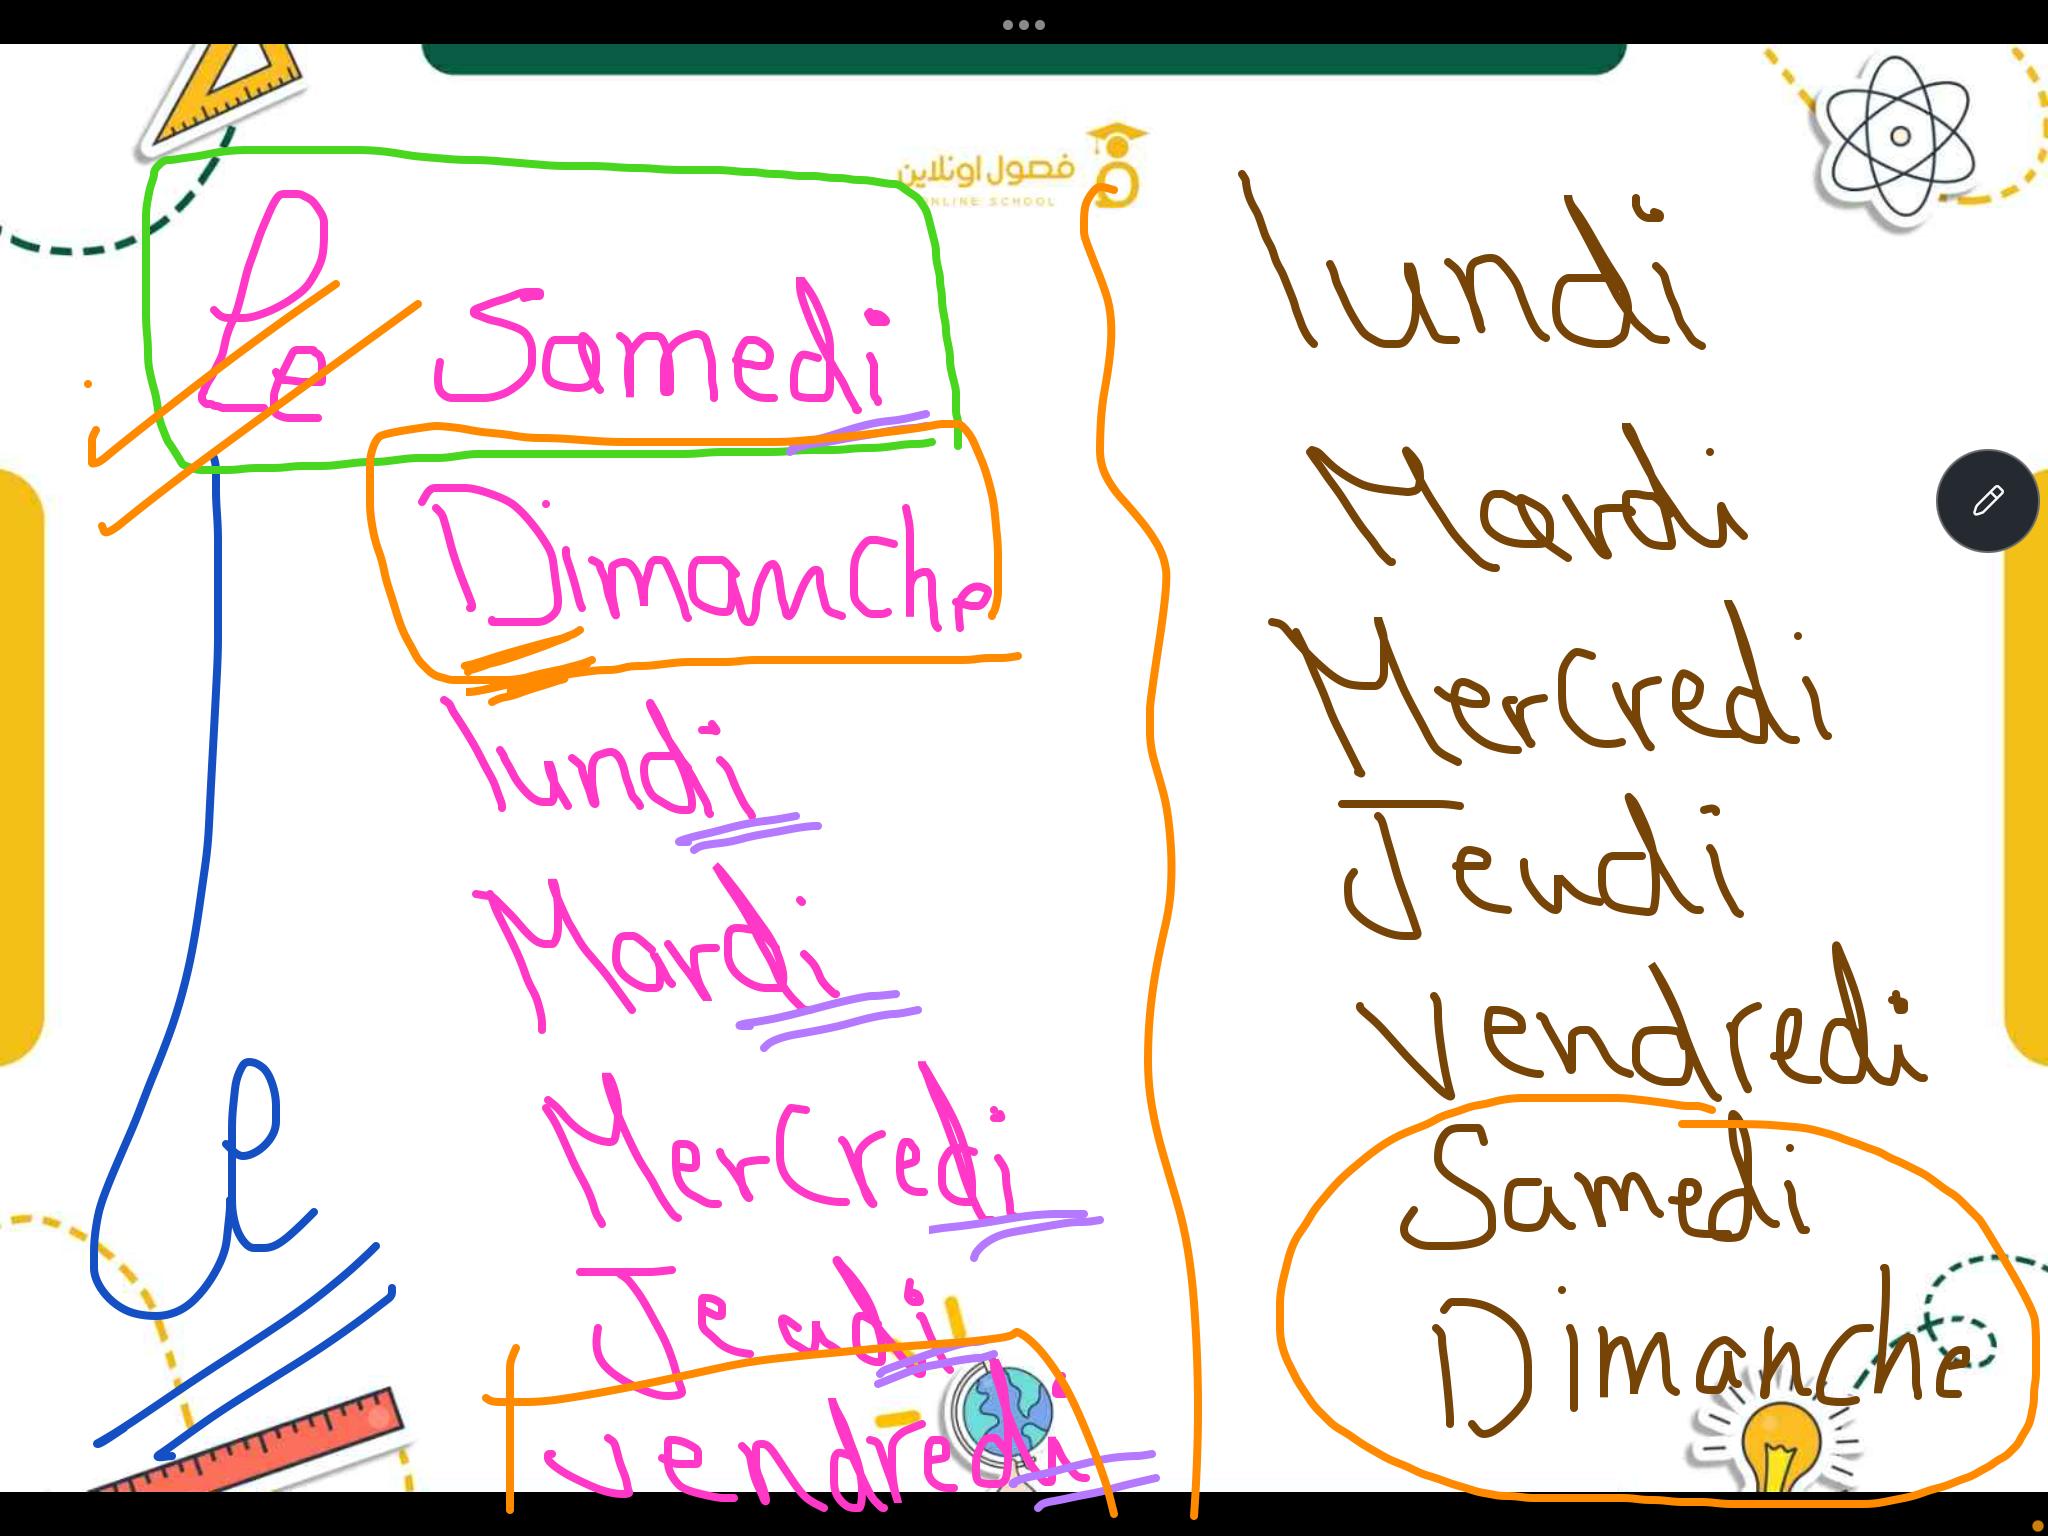 فصول اونلاين
ONLINE SCHOOL
Le Samedi
Dimanche
lundi
Mardi
Mercredi
Jeudi
Vendredi
le
lundi
Mardi
Mercredi
Jeudi
Vendredi
Samedi
Dimanche